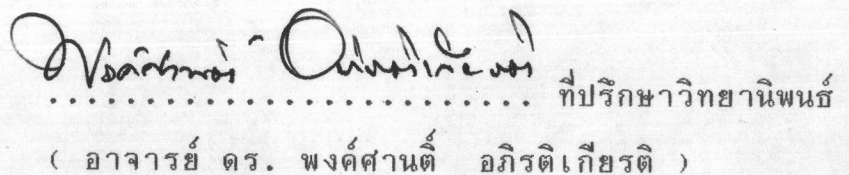 ........................ ที่ปรึกษาวิทยานิพนธ์
( อาจารย์ ดร. พงค์ศานติ์ อภิรติเกียรติ )